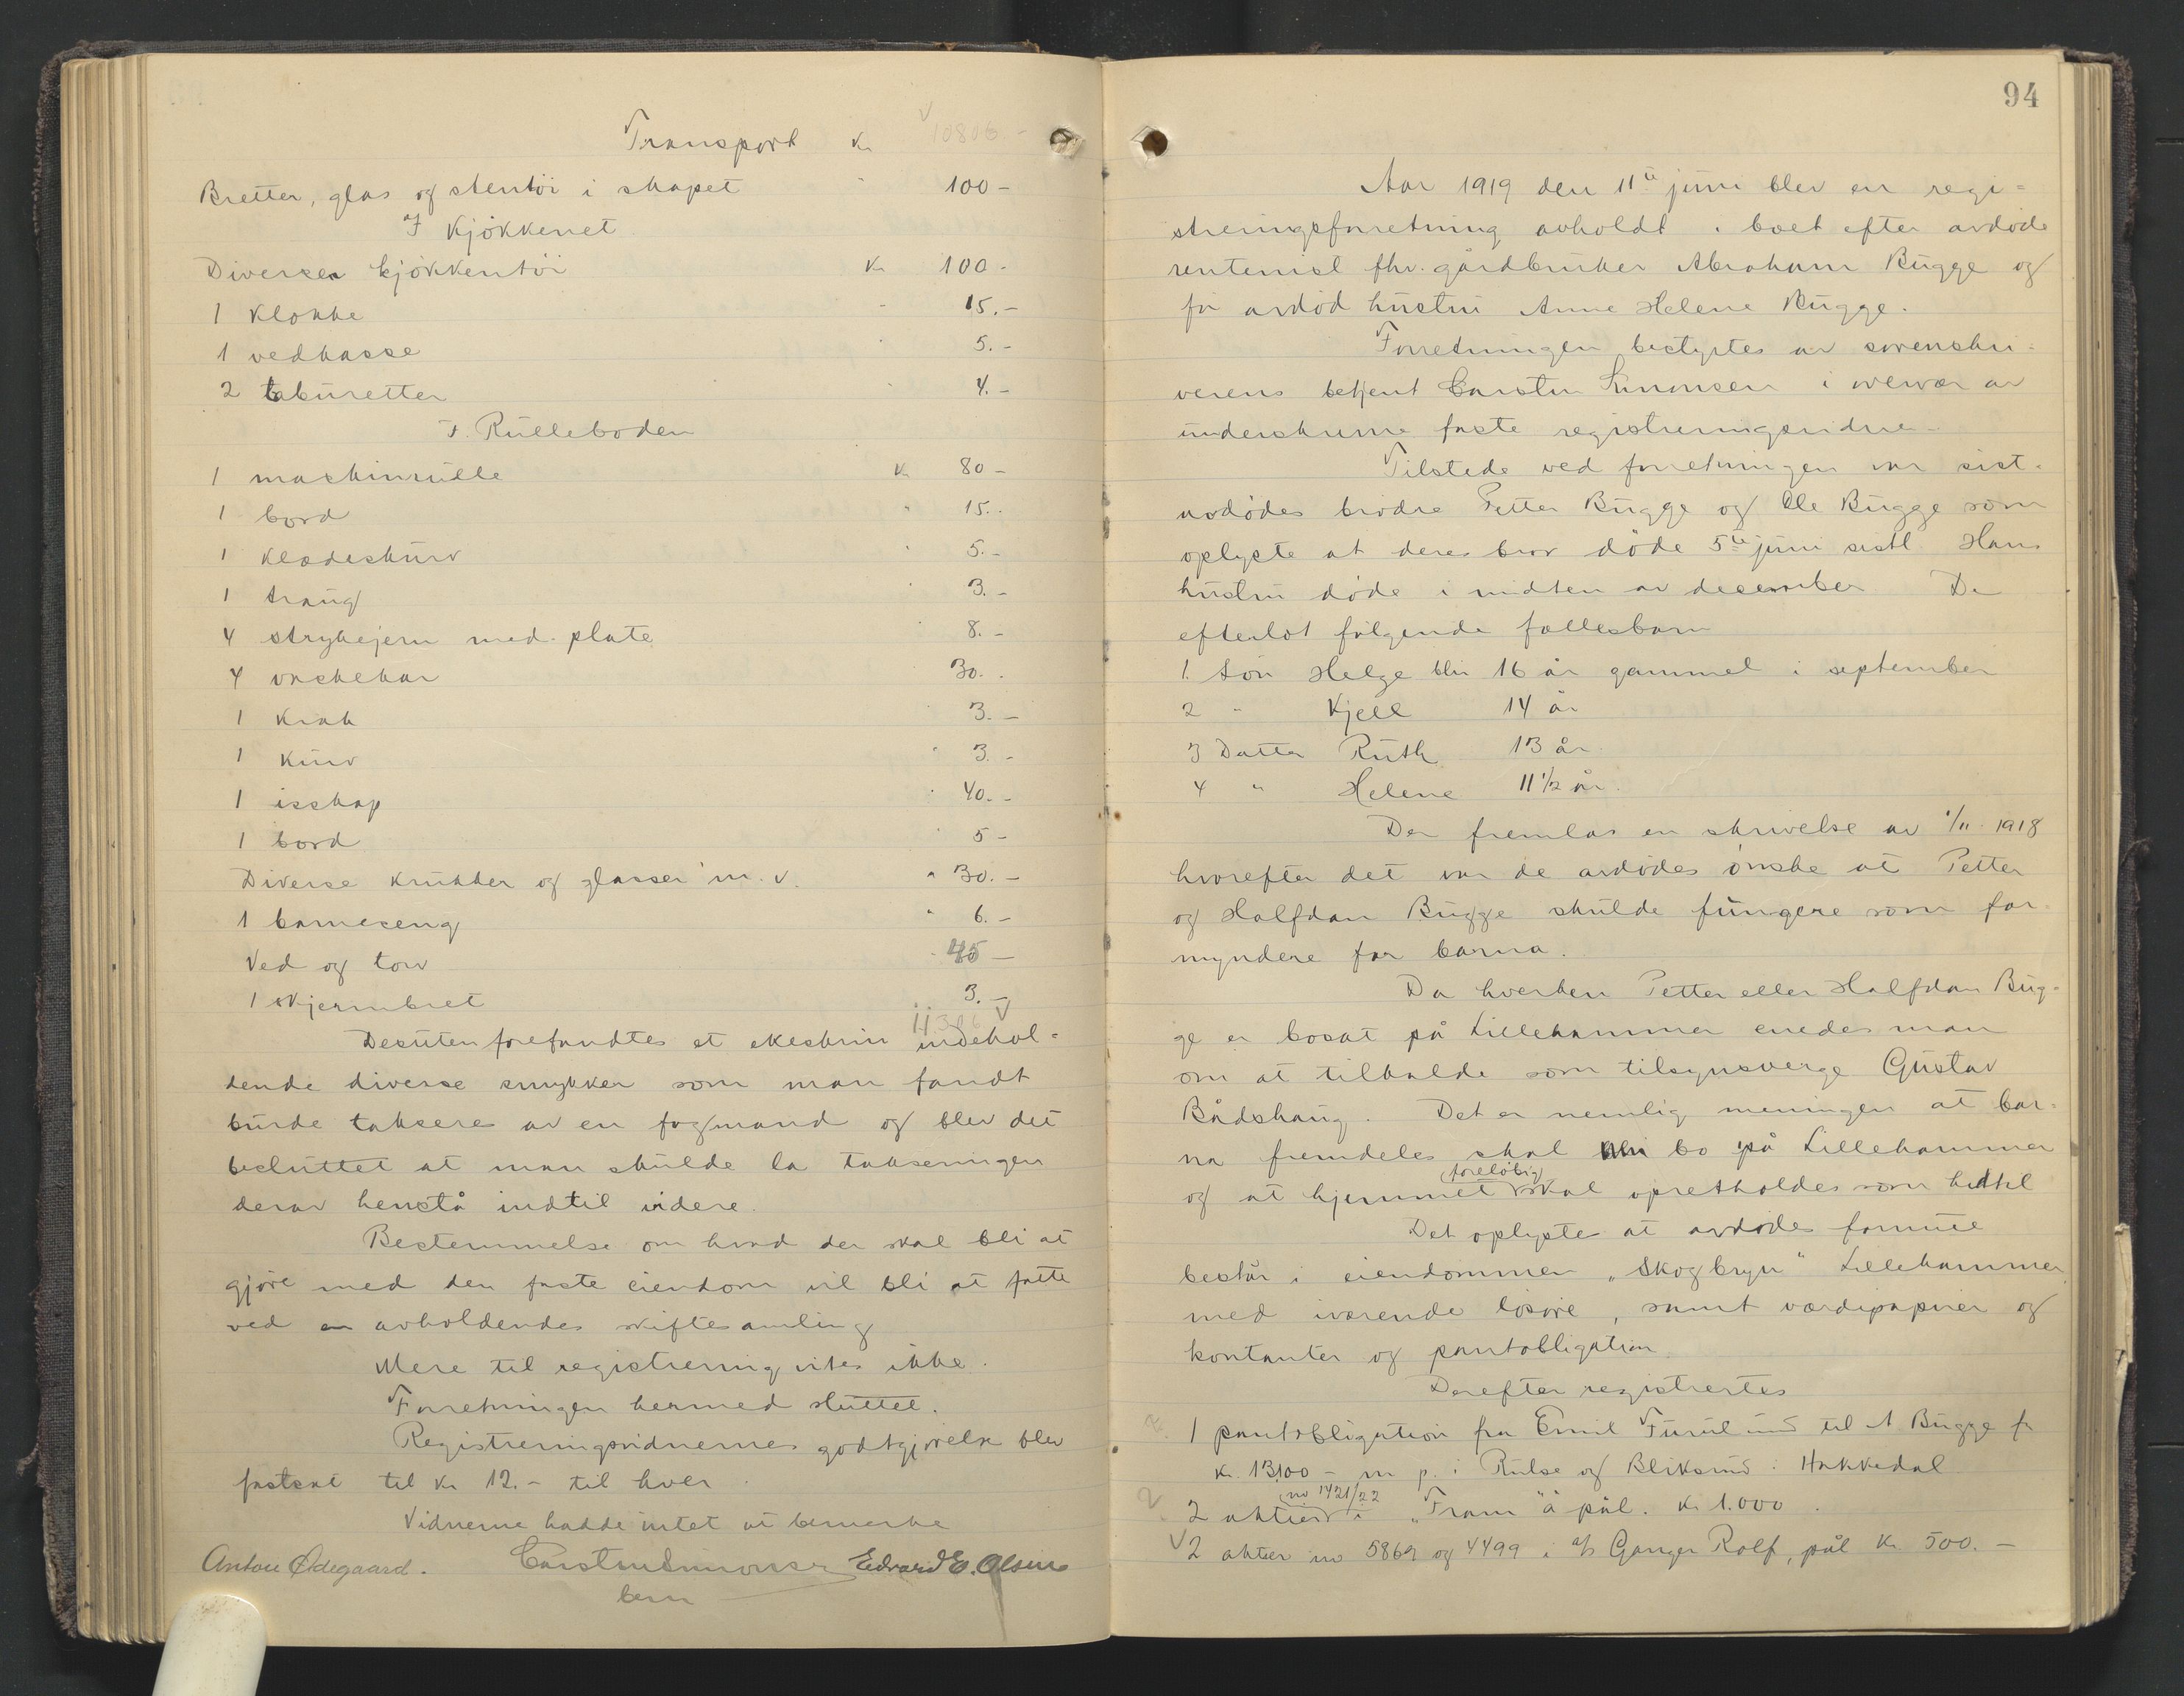 Transport Kr 10806.-
Bretter, glas og stentöi i skapet " 100-
I Kjökkenet
Diverse kjökkentöi Kr 100.-
1 Klokke - 15.-
1 vedkasse 5.-
2 taburetter 4.-
I. Rulleboden
1 maskinrulle Kr 80-
1 bord " 15.-
1 Klædeskurv " 5.-
1 traug " 3.-
4 strykejern med plate " 8.-
4 vaskekar 30.-
1 Krak 3.-
1 Kurv " 3.-
1 isskap " 40.-
1 bord " 5-
Diverse krukker og glasser m.v. " 30.-
1 barneseng " 6.-
Ved og torv - 45-
1 skjermbret 3.-
11.306
Desuten forefandtes et ekeskrin indehol=
dende diverse smykker som man fandt
burde takseres av en fagmand og blev det
besluttet at man skulde la takseringen
derav henstå indtil videre.
Bestemmelse om hvad der skal bli at
gjöre med den faste eiendom vil bli at fatte
ved en avholdendes skiftesamling
Mere til registrering vites ikke.
Forretningen hermed sluttet.
Registreringsvidnernes godtgjörelse blev
fastsat til Kr 12.- til hver
Vidnerne hadde intet at bemerke
Anton Ødegaard. Carsten Simonsen Edvard E. Olsen
bem
94
Aar 1919 den 11te juni blev en regi=
streringsforretning avholdt i boet efter avdöde
rentenist fhv. gårdbruker Abraham Bugge og
för avdöd hustru Anne Helene Bugge.
Forretningen bestyrtes av sorenskri=
verens betjent Carsten Simonsen i overvær av
underskrevne faste registreringsvidne.
Tilstede ved forretningen var sist=
avdödes brödre Petter Bugge og Ole Bugge som
oplyste at deres bror döde 5te juni sistl. Hans
hustru döde i midten av december De
efterlot fölgende fællesbarn
1. Sön Helge blir 16 år gammel i september
2 " Kjell 14 år
3 Datter Ruth 13 år.
4 " Helene 11 1/2 år.
Der fremlas en skrivelse av 1/11 1918
hvorefter det var de avdödes önske at Petter
og Halfdan Bugge skulde fungere som for=
myndere for barna.
Da hverken Petter eller Halfdan Bug=
ge er bosat på Lillehammer enedes man
om at tilkalde som tilsynsverge Gustav
Bådshaug. Det er nemlig meningen at bar=
na fremdeles skal bo på Lillehammer
og at hjemmet (forelöbig) skal opretholdes som hittil
Det oplystes at avdödes formue
består i eiendommen „Skogbryn" Lillehammer
med iværende lösöre, samt værdipapirer og
kontanter og pantobligation.
Derefter registrertes
1 pantobligation fra Emil Furulund til A Bugge for
Kr. 13100 - m p. i Rulse og Bliksrud i Hakkedal
2 2 aktier (no 1421/22) i „Fram" à pål. Kr 1.000.
2 aktier no 5869 og 4499 i a/s Ganger Rolf, pål Kr 500.-